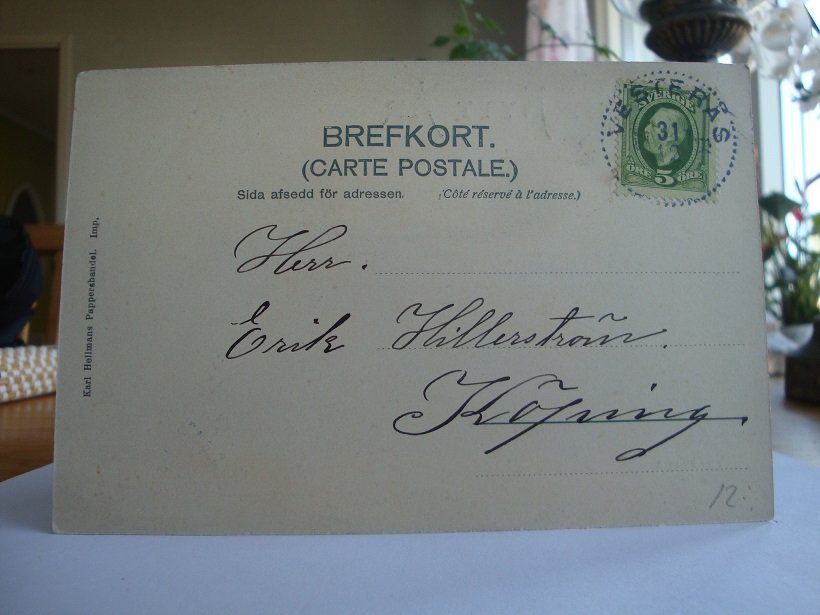 VESTERÅS
31
SVERIGE
5
ÖRE ÖRE
BREFKORT.
(CARTE POSTALE.)
Sida afsedd för adressen. (Côté réservé à l'adresse.)
Herr.
Erik Hillerström.
Köping.
12:
Karl Hellmans Pappershandel. Imp.